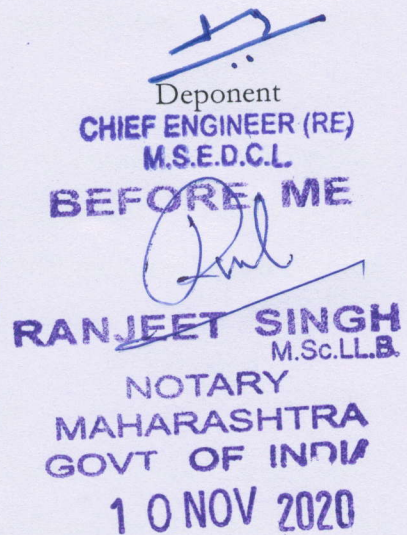 Deponent
CHIEF ENGINEER (RE)
M.S.E.D.C.L.
BEFORE ME
RANJEET SINGH
M.Sc.LL.B.
NOTARY
MAHARASHTRA
GOVT OF INDIA
10 NOV 2020